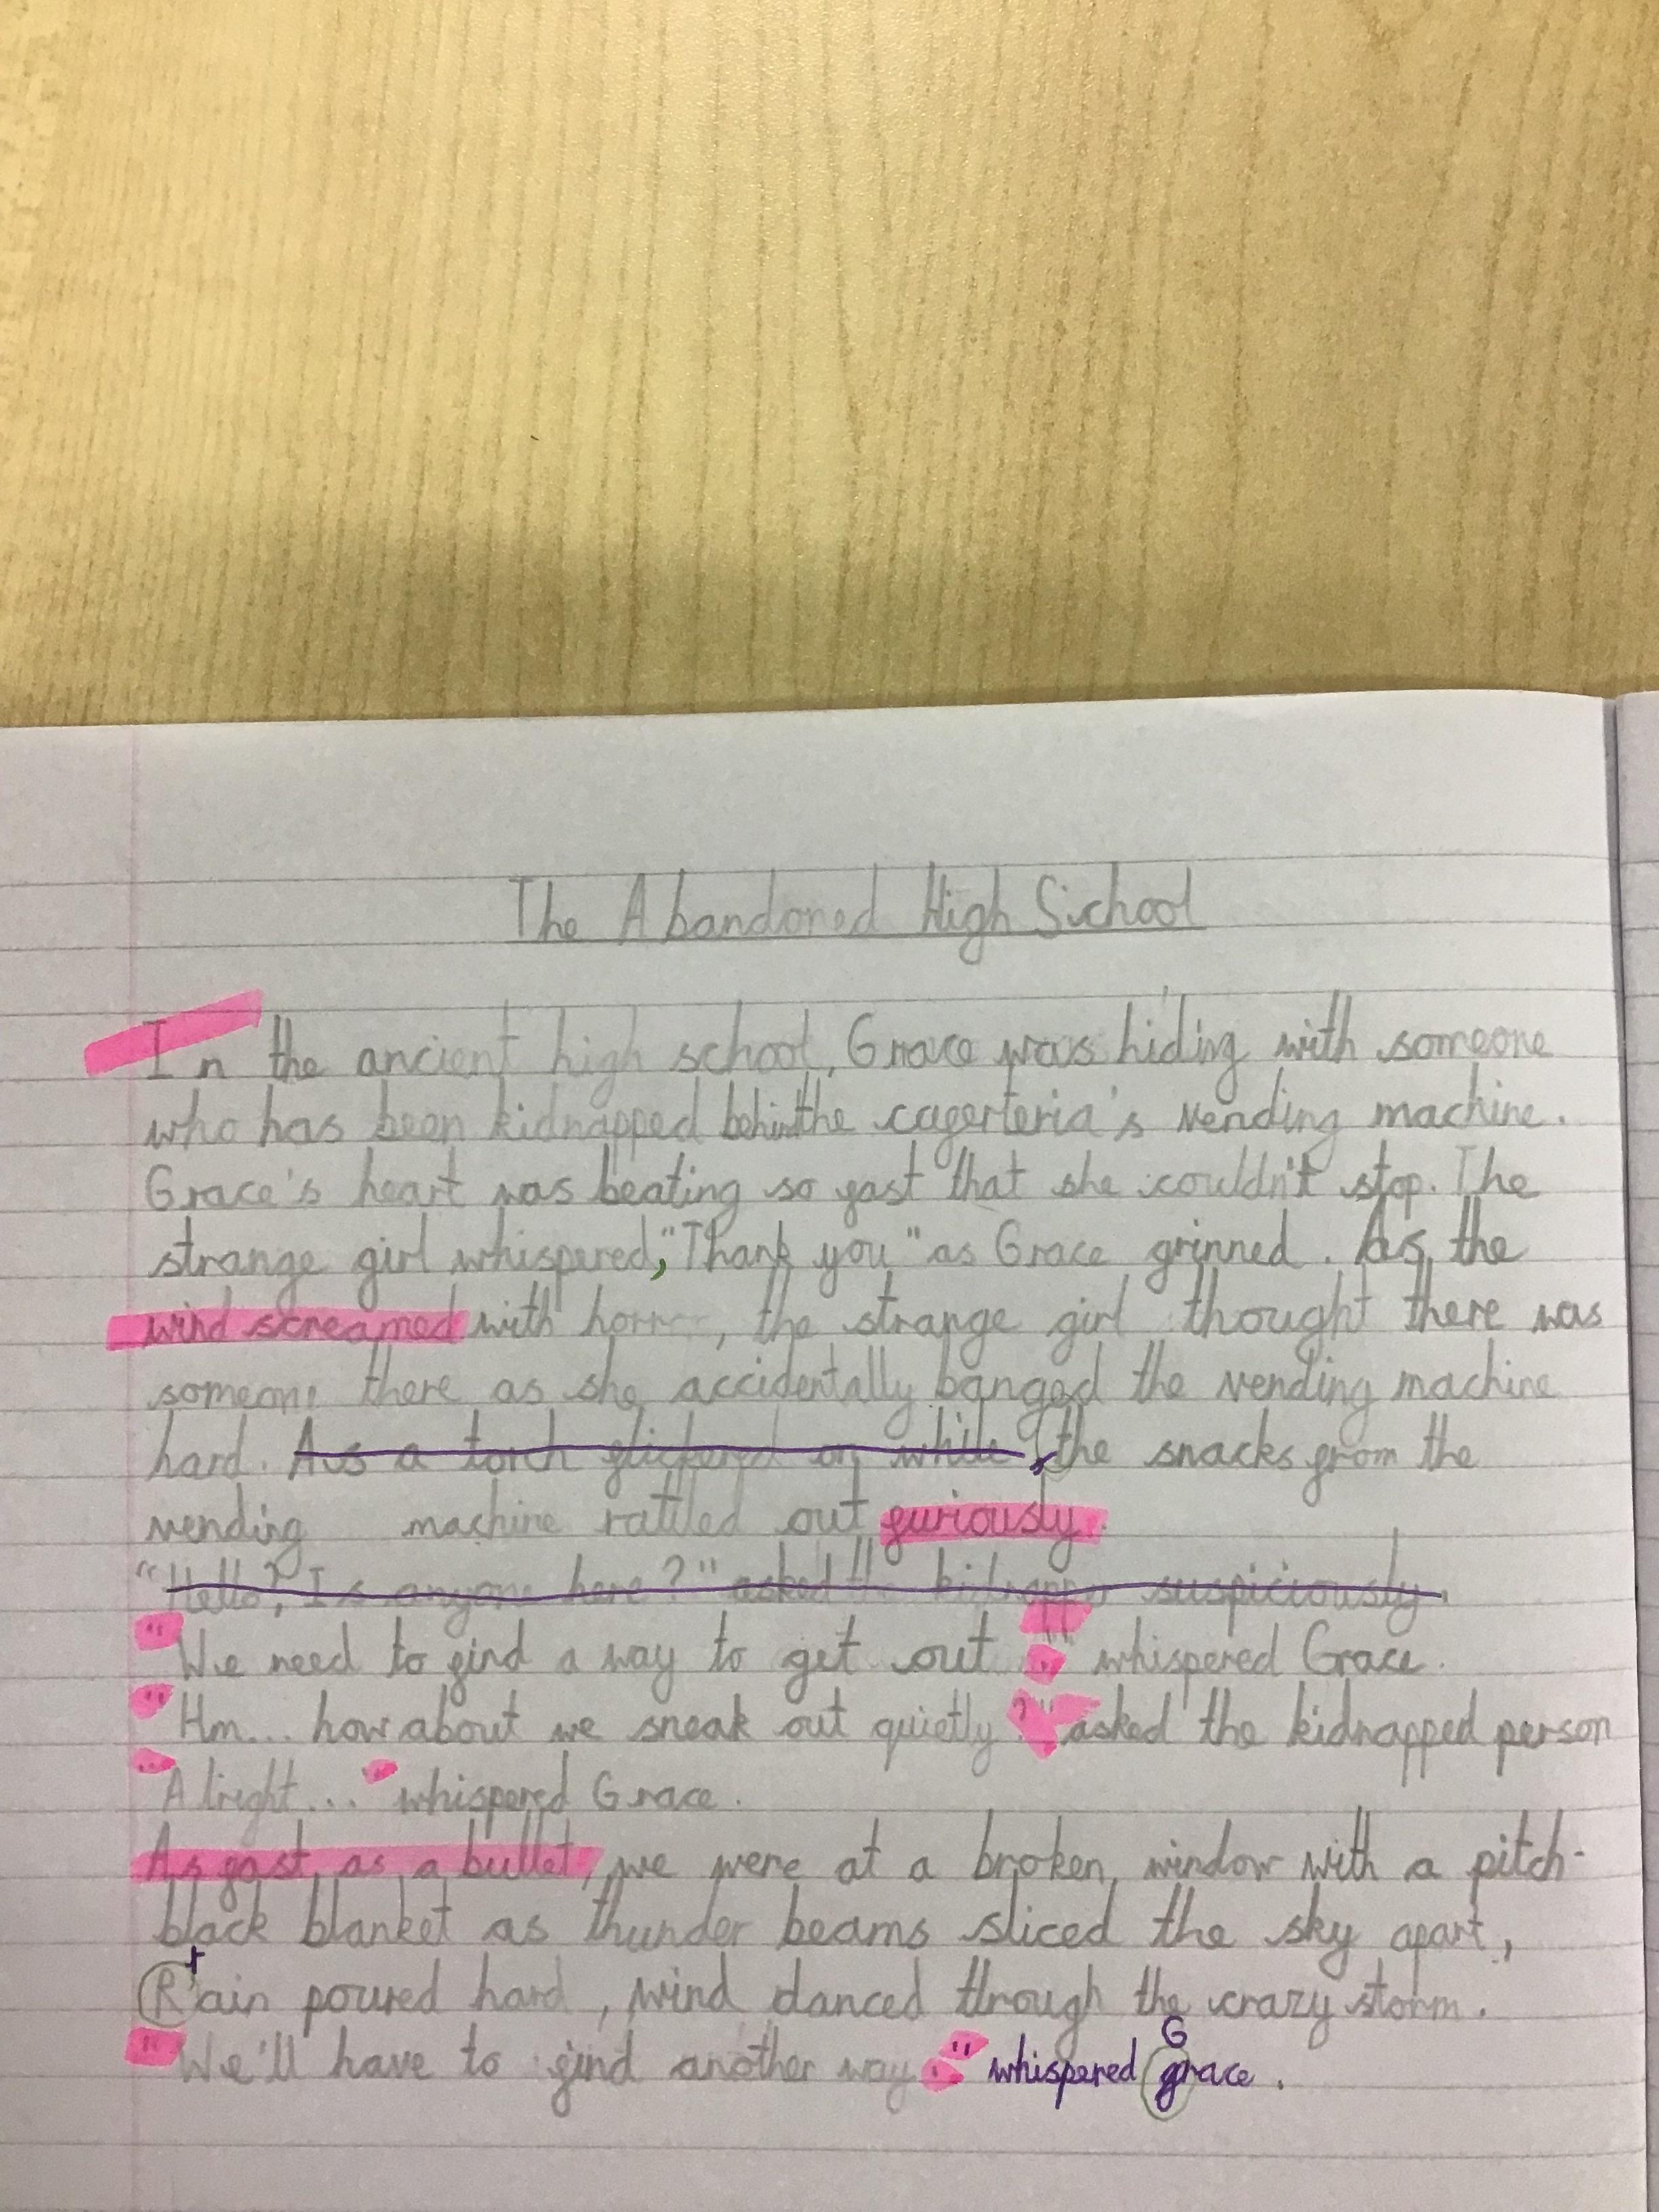 The Abandoned High School
In the ancient high school, Grace was hiding with someone
who has been kidnapped behind the caferteria's vending machine.
Grace's heart was beating so fast that she couldn't stop. The
strange girl whispered, "Thank you" as Grace grinned. As the
wind screamed with horror, the strange girl thought there was
someone there as she accidentally banged the vending machine
hard. As a torch flickered on while, the snacks from the
vending machine rattled out furiously.
"Hello, Is anyone here?" asked the kidnapper suspiciously.
"We need to find a way to get out." whispered Grace.
"Hm... how about we sneak out quietly?" asked the kidnapped person
"Alright..." whispered Grace.
As fast as a bullet, we were at a broken window with a pitch-
black blanket as thunder beams sliced the sky apart,
r
Rain poured hard, wind danced through the crazy storm.
G
"We'll have to find another way." whispered grace.